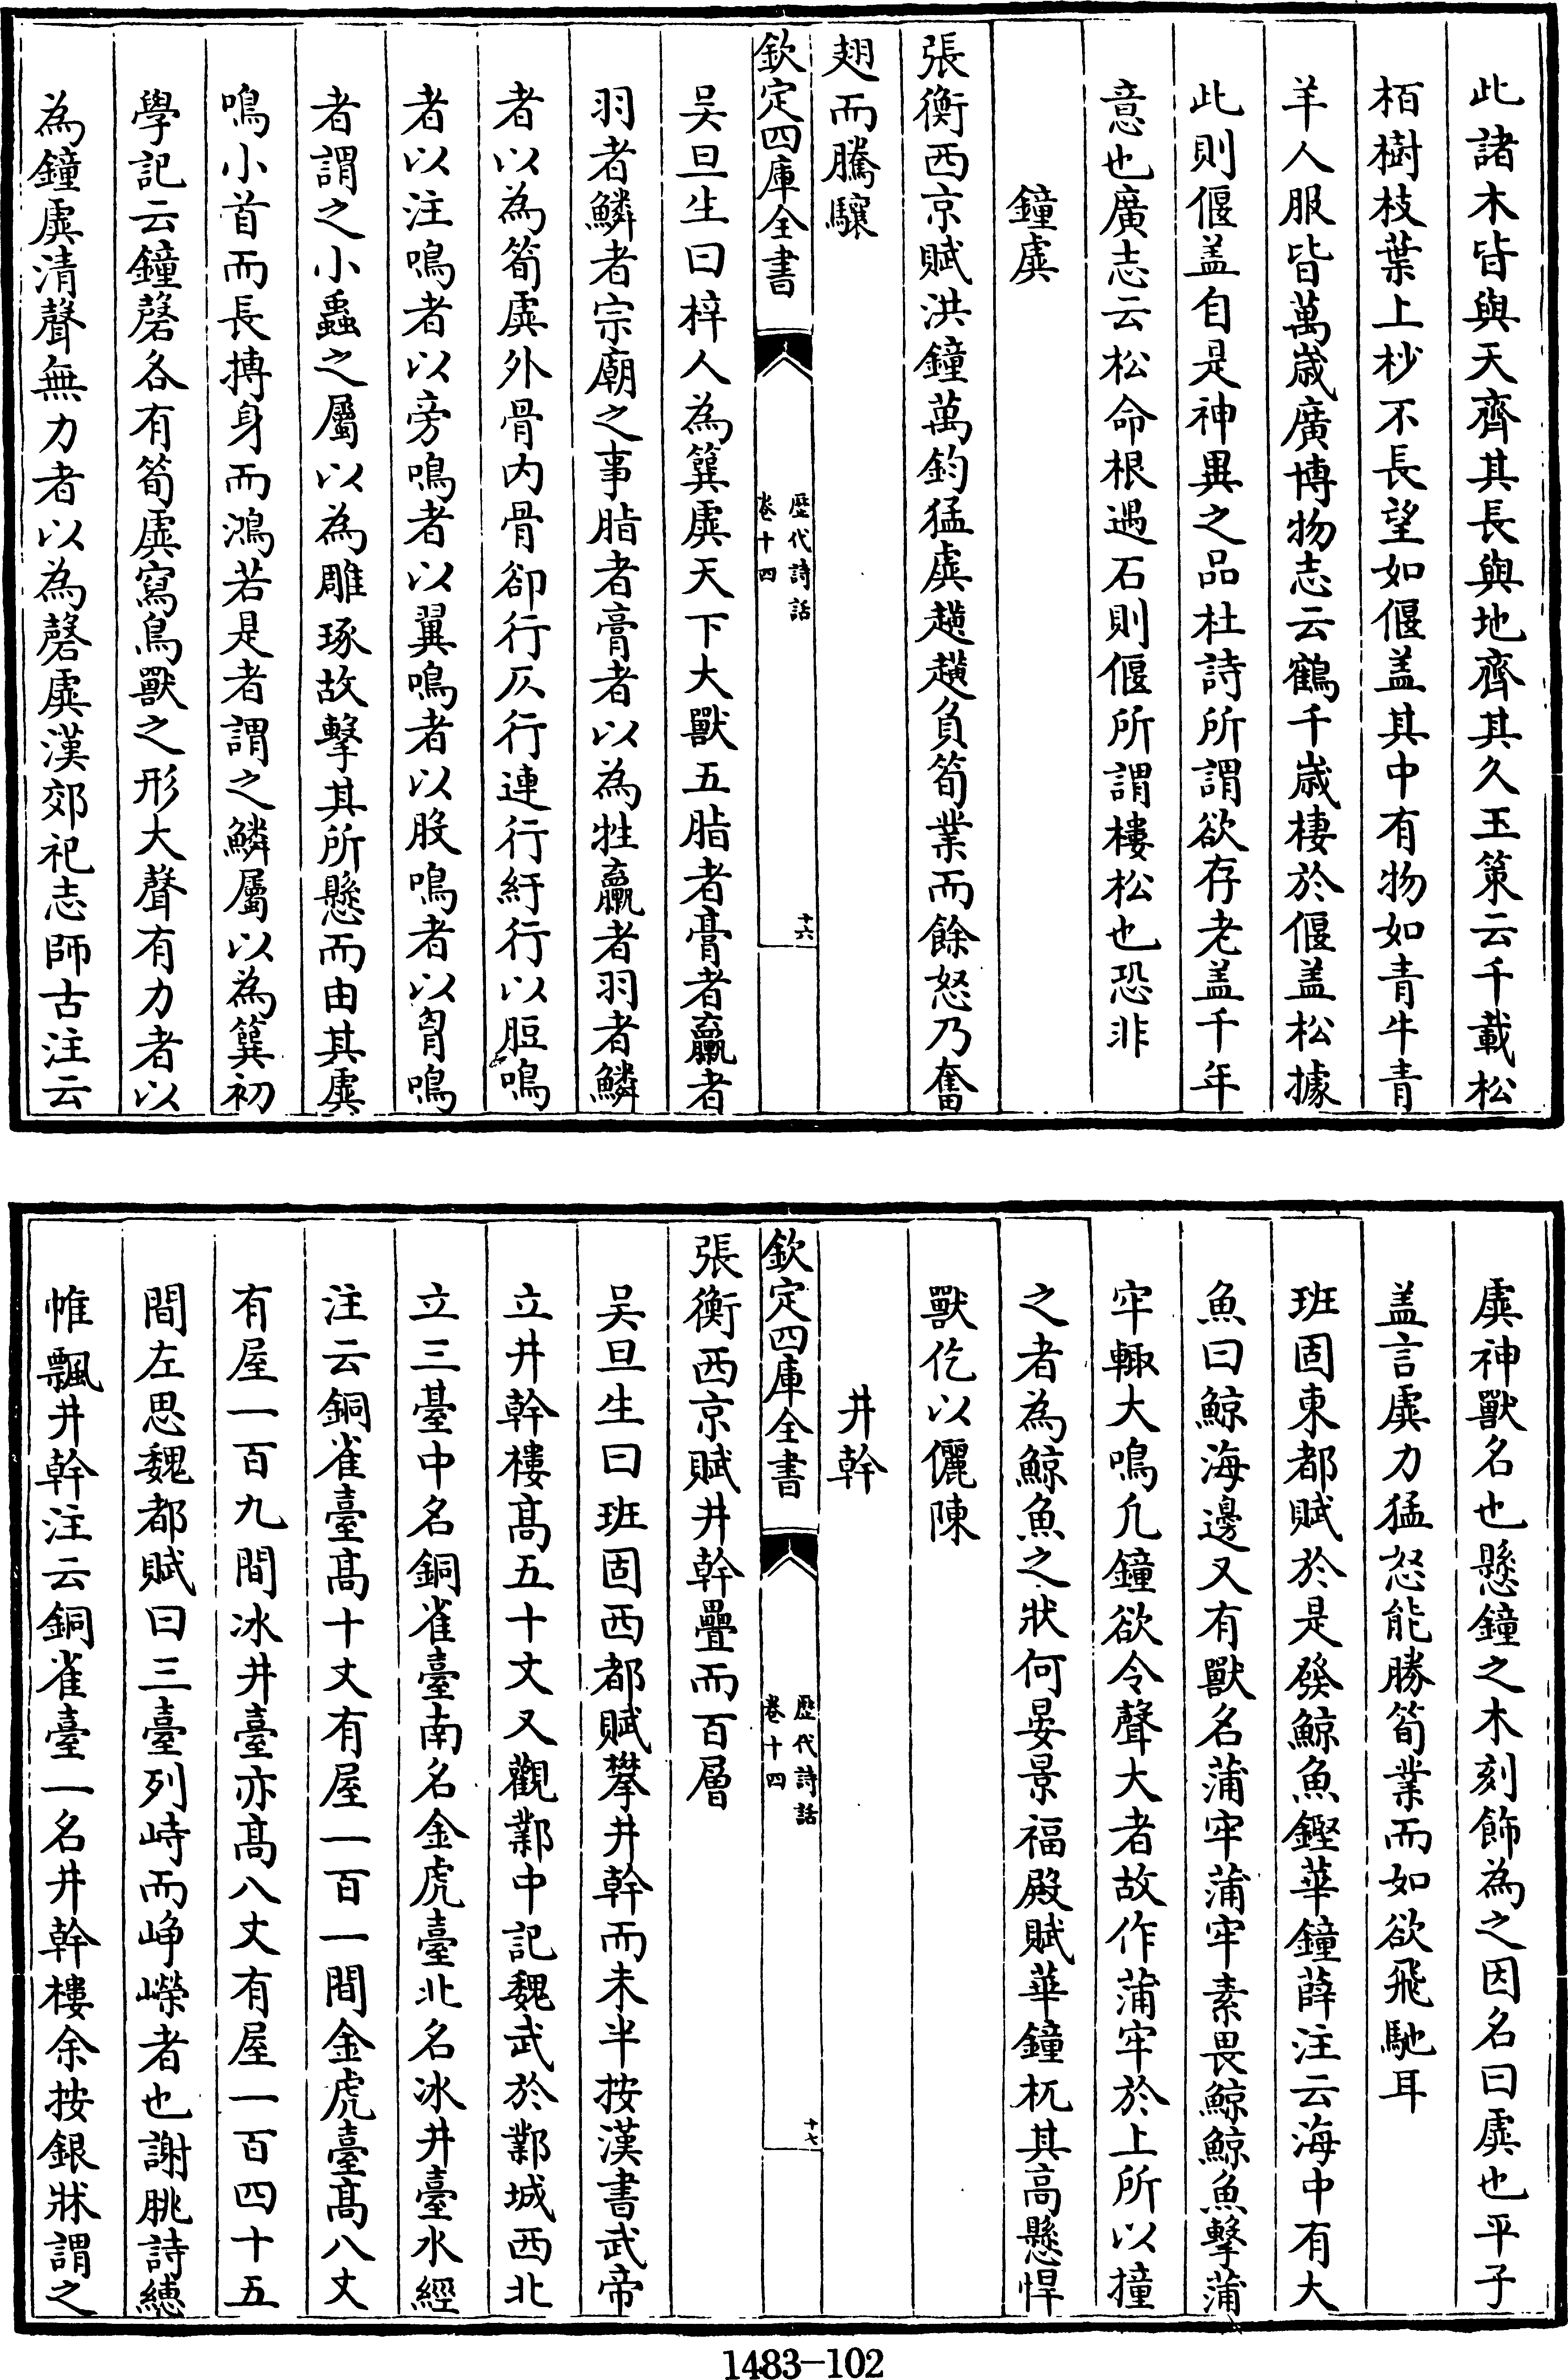 此諸木皆與天齊其長與地齊其久玉策云千載松
栢樹枝葉上杪不長望如偃盖其中有物如青牛青
羊人服皆萬歲廣博物志云鶴千歲棲於偃盖松據
此則偃盖自是神異之品杜詩所謂欲存老盖千年
意也廣志云松命根遇石則偃所謂樓松也恐非
鐘虡
張衡西京賦洪鐘萬鈞猛虡趪趪負筍業而餘怒乃奮
翅而騰驤
欽定四庫全書
歷代詩話
卷十四
十六
吴旦生曰梓人為簨虡天下大獸五脂者膏者臝者
羽者鱗者宗廟之事脂者膏者以為牲臝者羽者鱗
者以為筍虡外骨内骨卻行仄行連行紆行以脰鳴
者以注鳴者以旁鳴者以翼鳴者以股鳴者以胷鳴
者謂之小蟲之屬以為雕琢故擊其所懸而由其虡
鳴小首而長摶身而鴻若是者謂之鱗屬以為簨初
學記云鐘磬各有筍虡寫鳥獸之形大聲有力者以
為鐘虡清聲無力者以為磬虡漢郊祀志師古注云
虡神獸名也懸鐘之木刻飾為之因名曰虡也平子
盖言虡力猛怒能勝筍業而如欲飛馳耳
班固東都賦於是發鯨魚鏗華鐘薛注云海中有大
魚曰鯨海邊又有獸名蒲牢蒲牢素畏鯨鯨魚擊蒲
牢輙大鳴凢鐘欲令聲大者故作蒲牢於上所以撞
之者為鯨魚之狀何晏景福殿賦華鐘杌其高懸悍
獸仡以儷陳
井幹
欽定四庫全書
歷代詩話
卷十四
十七
張衡西京賦井幹疊而百層
吴旦生曰班固西都賦攀井幹而未半按漢書武帝
立井幹樓髙五十丈又觀鄴中記魏武於鄴城西北
立三臺中名銅雀臺南名金虎臺北名冰井臺水經
注云銅雀臺髙十丈有屋一百一間金虎臺髙八丈
有屋一百九間冰井臺亦髙八丈有屋一百四十五
間左思魏都賦曰三臺列峙而崢嶸者也謝朓詩繐
帷飄井幹注云銅雀臺一名井幹樓余按銀牀謂之
1483-102